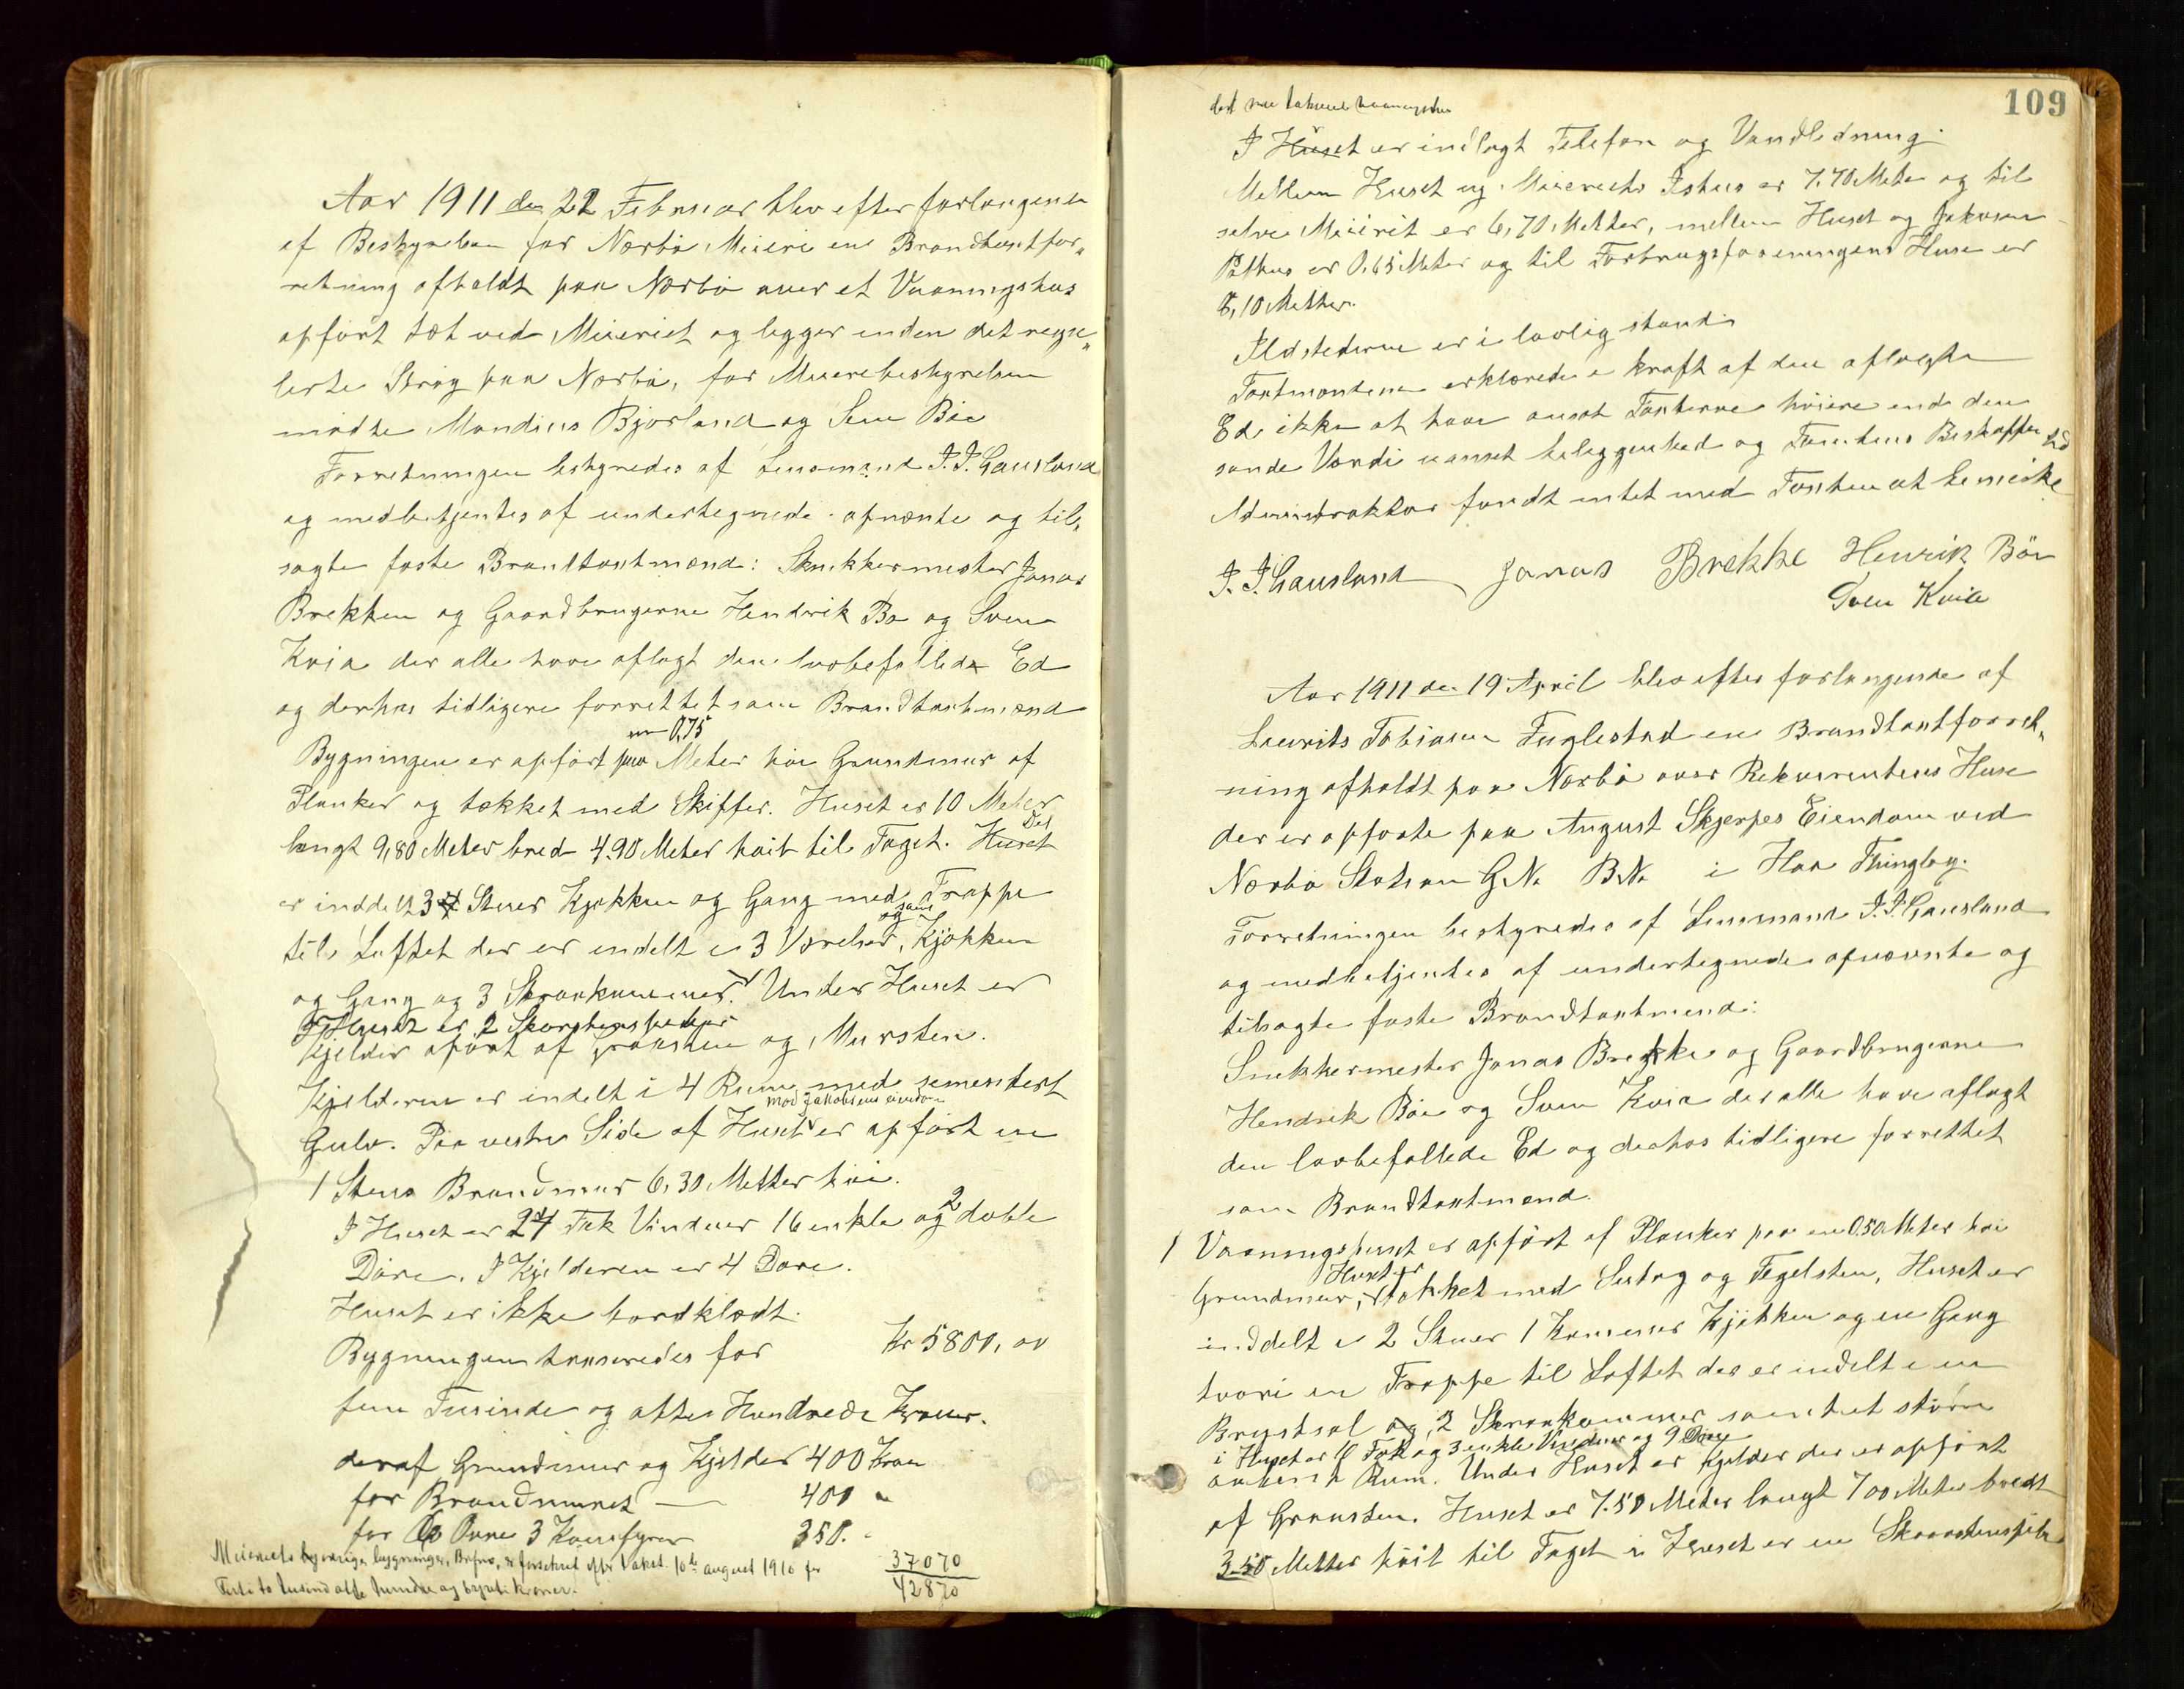 Aar 1911 den 22 Februar blev efter forlangende
af Bestyrelsen for Nærbø Mieeri en Brandtaxtfor„
retning afholdt paa Nærbø over et Vaaningshus
opført tæt ved Mieeriet og ligger inden det regu„
lerte Strøg paa Nærbø, for Mieeribestyrelsen
mødte Mandius Bjorland og Sem Bøe
Forretningen bestyredes af Lensmand J. J. Gausland
og medbetjentes af undertegnede opnænte og til„
sagte faste Brandtaxtmænd: Snekkermester Jonas
Brekken og Gaardbrugerne Hendrik Bø og Sven
Kvia der alle have aflagt den lovbefallede Ed
og derhos tidligere forrettet som Brandtaxtmænd
en 0,75
Bygningen er opført paa Meter høi Grundmur af
Planker og tækket med Skiffer. Huset er 10 Meter
langt 9,80 Meter bred 4.90 Meter høit til Taget. Huset
Det
er inddelt 3 Stuer Kjøkken og Gang med Trappe
til Loftet der er indelt i 3 Værelser, Kjøkken
og samt
og Gang og 3 Skraakammer. Under Huset er
I Huset er 2 Skorstenspiber
Kjelder opført af Graasten og Mursten.
Kjelderen er indelt i 4 Rum med sementert
mod Jakobsens eiendom
Gulv. Paa vestre Side af Huset er opført en
1 Stens Brandmur 6,30 Metter høi.
I Huset er 24 Fak Vinduer 16 enkle og 2 doble
Døre. I Kjelderen er 4 Døre.
Huset er ikke bordklædt.
Bygningen taxeredes for Kr 5800, 00
fem Tusinde og otte Hundrede Kroner.
deraf Grundmur og Kjelder 400 Kron
for Brandmuret — 400 "
for Ovne 3 Komfyrer 350. "
Mieeriets øvrige bygninger, er forsikret efter Takst 10de august 1910 for 37070
Førti to tusind otte hundre og sytti kroner. 42870
109
det nu takserte vaaningshus
I Huset er indlagt Telefon og Vandledning.
Mellem Huset og Mieeriets Ishus er 7.70 Meter og til
selve Mieeriet er 6,70 Metter, mellem Huset og Jakobsen
Pakhus er 0.65 Meter og til Forbrugsforeningens Huse er
8,10 Metter.
Ildstederne er i lovlig stand.
Taxtmændene erklærede i kraft af den aflagte
Ed ikke at have ansat Taxterne høiere end den
sande Værdi uanset beliggenhed og Tomtens Beskaffenhed
Administrator fandt intet med Taxten at bemerke
J. J. Gausland Jonas Brekke Henrik Böe
Sven Kvia
Aar 1911 den 19 April blev efter forlangende af
Laurits Tobiasen Fuglestad en Brandtaxtforret„
ning afholdt paa Nærbø over Rekvirentens Huse
der er opførte paa August Skjerpes Eiendom ved
Nærbø Station G.No B.No i Haa Thinglag.
Forretningen bestyredes af Lensmand J. J. Gausland
og medbetjentes af undertegnede opnævnte og
tilsagte faste Brandtaxtmend:
Snekkermester Jonas Brekke og Gaardbrugerne
Hendrik Bøe og Sven Kvia der alle have aflagt
den lovbefallede Ed og derhos tidligere forrettet
som Brandtaxtmænd.
1 Vaaningshuset er opført af Planker paa en 0.50 Meter høi
Huset er
Grundmur, tækket med Sutag og Tegelsten, Huset er
inddelt i 2 Stuer 1 Kammer Kjøkken og en Gang
hvori en Trappe til Loftet der er indelt i en
Brystsal og 2 Skraakammer samt et større
i Huset er 10 Fak og 3 enkle Vinduer og 9 Døre
aabent Rum. Under Huset er Kjelder der er opført
af Graasten. Huset er 7.50 Meter langt 7 00 Meter bredt
3.50 Metter høit til Taget i Huset er en Skorstenspibe